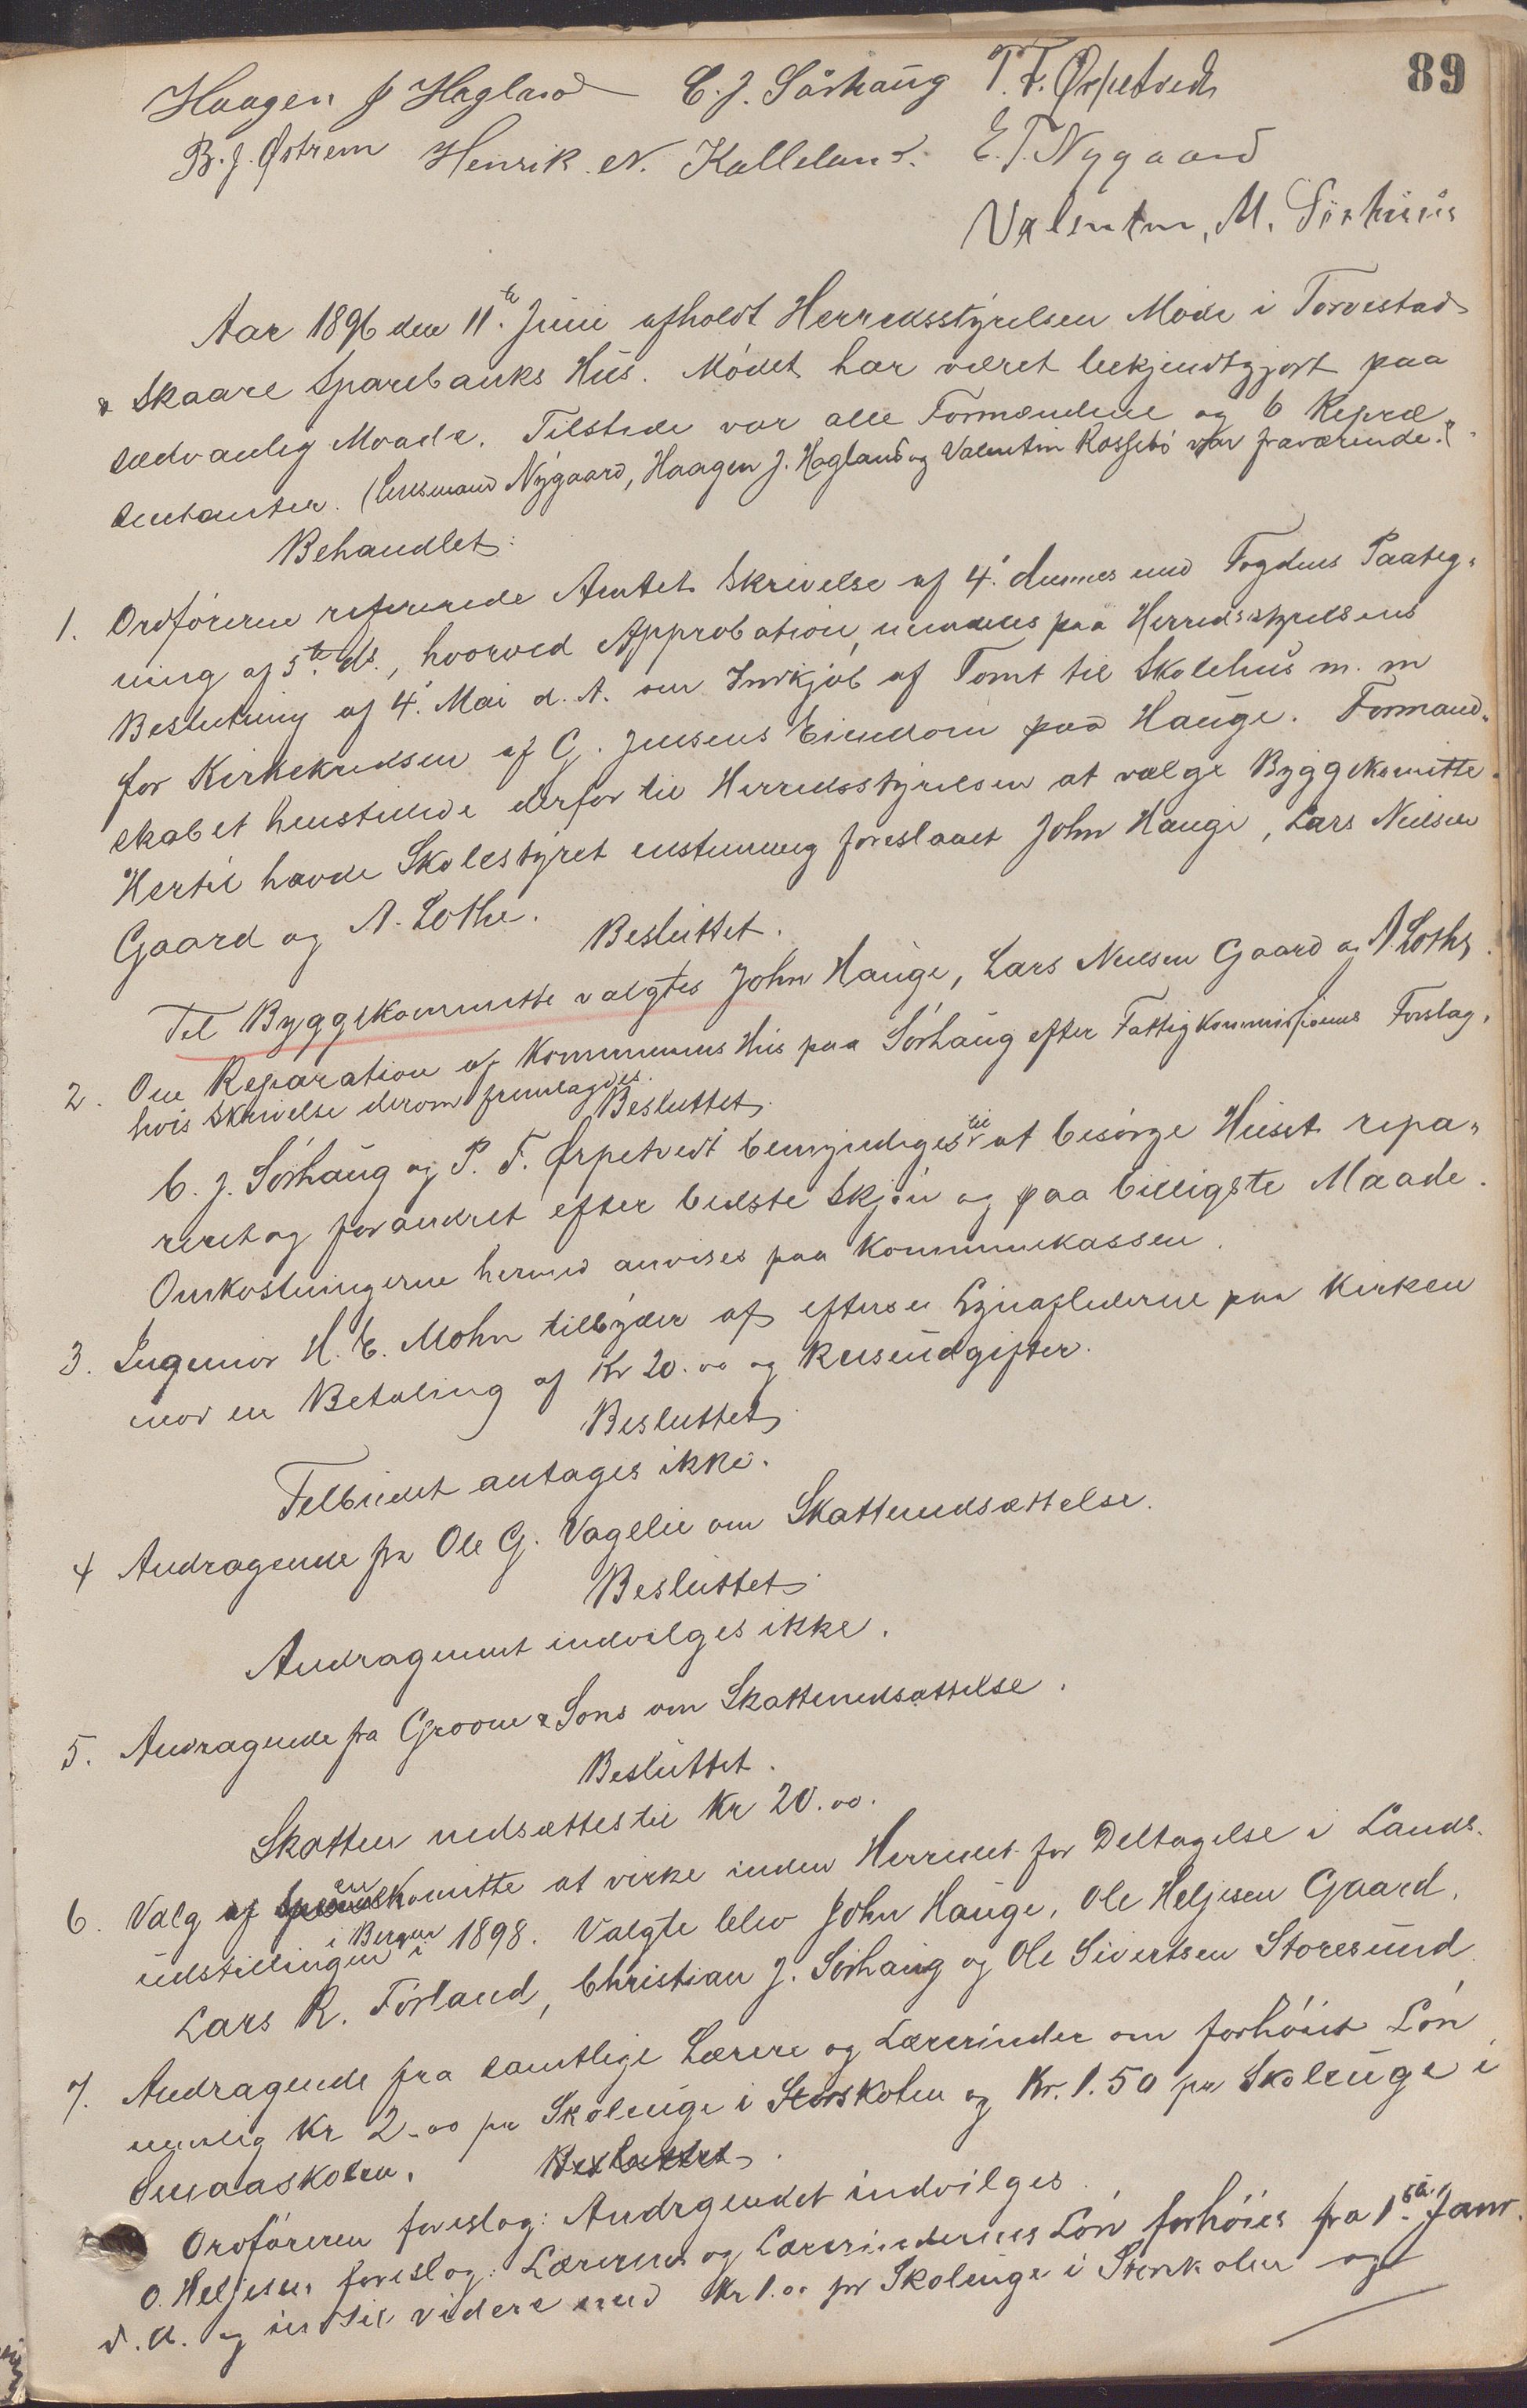 89
Haagen J Hagland C. J. Sørhaug T. F. Ørpetvedt
B. J. Østrem Henrik. N. Kalleland. E. T. Nygaard
Valentin, M. Sørhuus
Aar 1896 den 11te Juni afholdt Herredsstyrelsen Møde i Torvestad
& Skaare Sparebanks Hus. Mødet har været bekjendtgjort paa
sædvanlig Maade. Tilstede var alle Formændene og 6 Repræ
sentanter. (Lensmand Nygaard, Haagen J. Hagland og Valentin Rossebø var fraværende.)
Behandlet:
1. Ordføreren refererede Amtets Skrivelse af 4. dennes med Fogdens Paateg-
ning af 5te ds., hvorved Approbation meddeles paa Herredsstyrelsens
Beslutning af 4. Mai d. A. om Indkjøb af Tomt til Skolehus m. m
for Kirkekredsen af G. Jensens Eiendom paa Hauge. Formand-
skabet henstillede derfor til Herredsstyrelsen at vælge Byggekomitte.
Hertil havde Skolestyret enstemmig foreslaaet John Hauge, Lars Nielsen
Gaard og A. Lothe.
Besluttet.
Til Byggekommitte valgtes John Hauge, Lars Nielsen Gaard og A. Lothe.
2. Om Reparation af Kommunens Hus paa Sørhaug efter Fattigkommissionens Forslag,
hvis Skrivelse derom fremlagdes.
Besluttet
C. J. Sørhaug og P. F. Ørpetvedt bemyndiges til at besørge Huset repa-
reret og forandret efter bedste Skjøn og paa billigste Maade.
Omkostningerne hermed anvises paa Kommunekassen.
3. Ingeniør H. E. Mohn tilbyder at efterse Lynaflederne paa Kirken
mod en Betaling af Kr 20.00 og Reiseudgifter.
Besluttet
Tilbudet antages ikke.
4 Andragende fra Ole G. Vagelie om Skattenedsættelse.
Besluttet
Andragendet indvilges ikke.
5. Andragende fra Groom & Sons om Skattenedsættelse.
Besluttet.
Skatten nedsættes til Kr 20.00.
6. Valg af en Komitte at virke inden Herredet for Deltagelse i Lands-
udstillingen i Bergen i 1898. Valgte blev John Hauge, Ole Heljesen Gaard,
Lars R. Førland, Christian J. Sørhaug og Ole Sivertsen Storesund.
7. Andragende fra samtlige Lærere og Lærerinder om forhøiet Løn,
nemlig Kr 2.00 pr Skoleuge i Storskolen og Kr. 1.50 pr Skoleuge i
Smaaskolen. Besluttet.
Ordføreren foreslog: Andragendet indvilges.
O. Heljesen foreslog: Lærernes og Lærerindernes Løn forhøies fra 1ste Janr.
d. A. og indtil videre med Kr 1.00 pr Skoleuge i Storskolen og